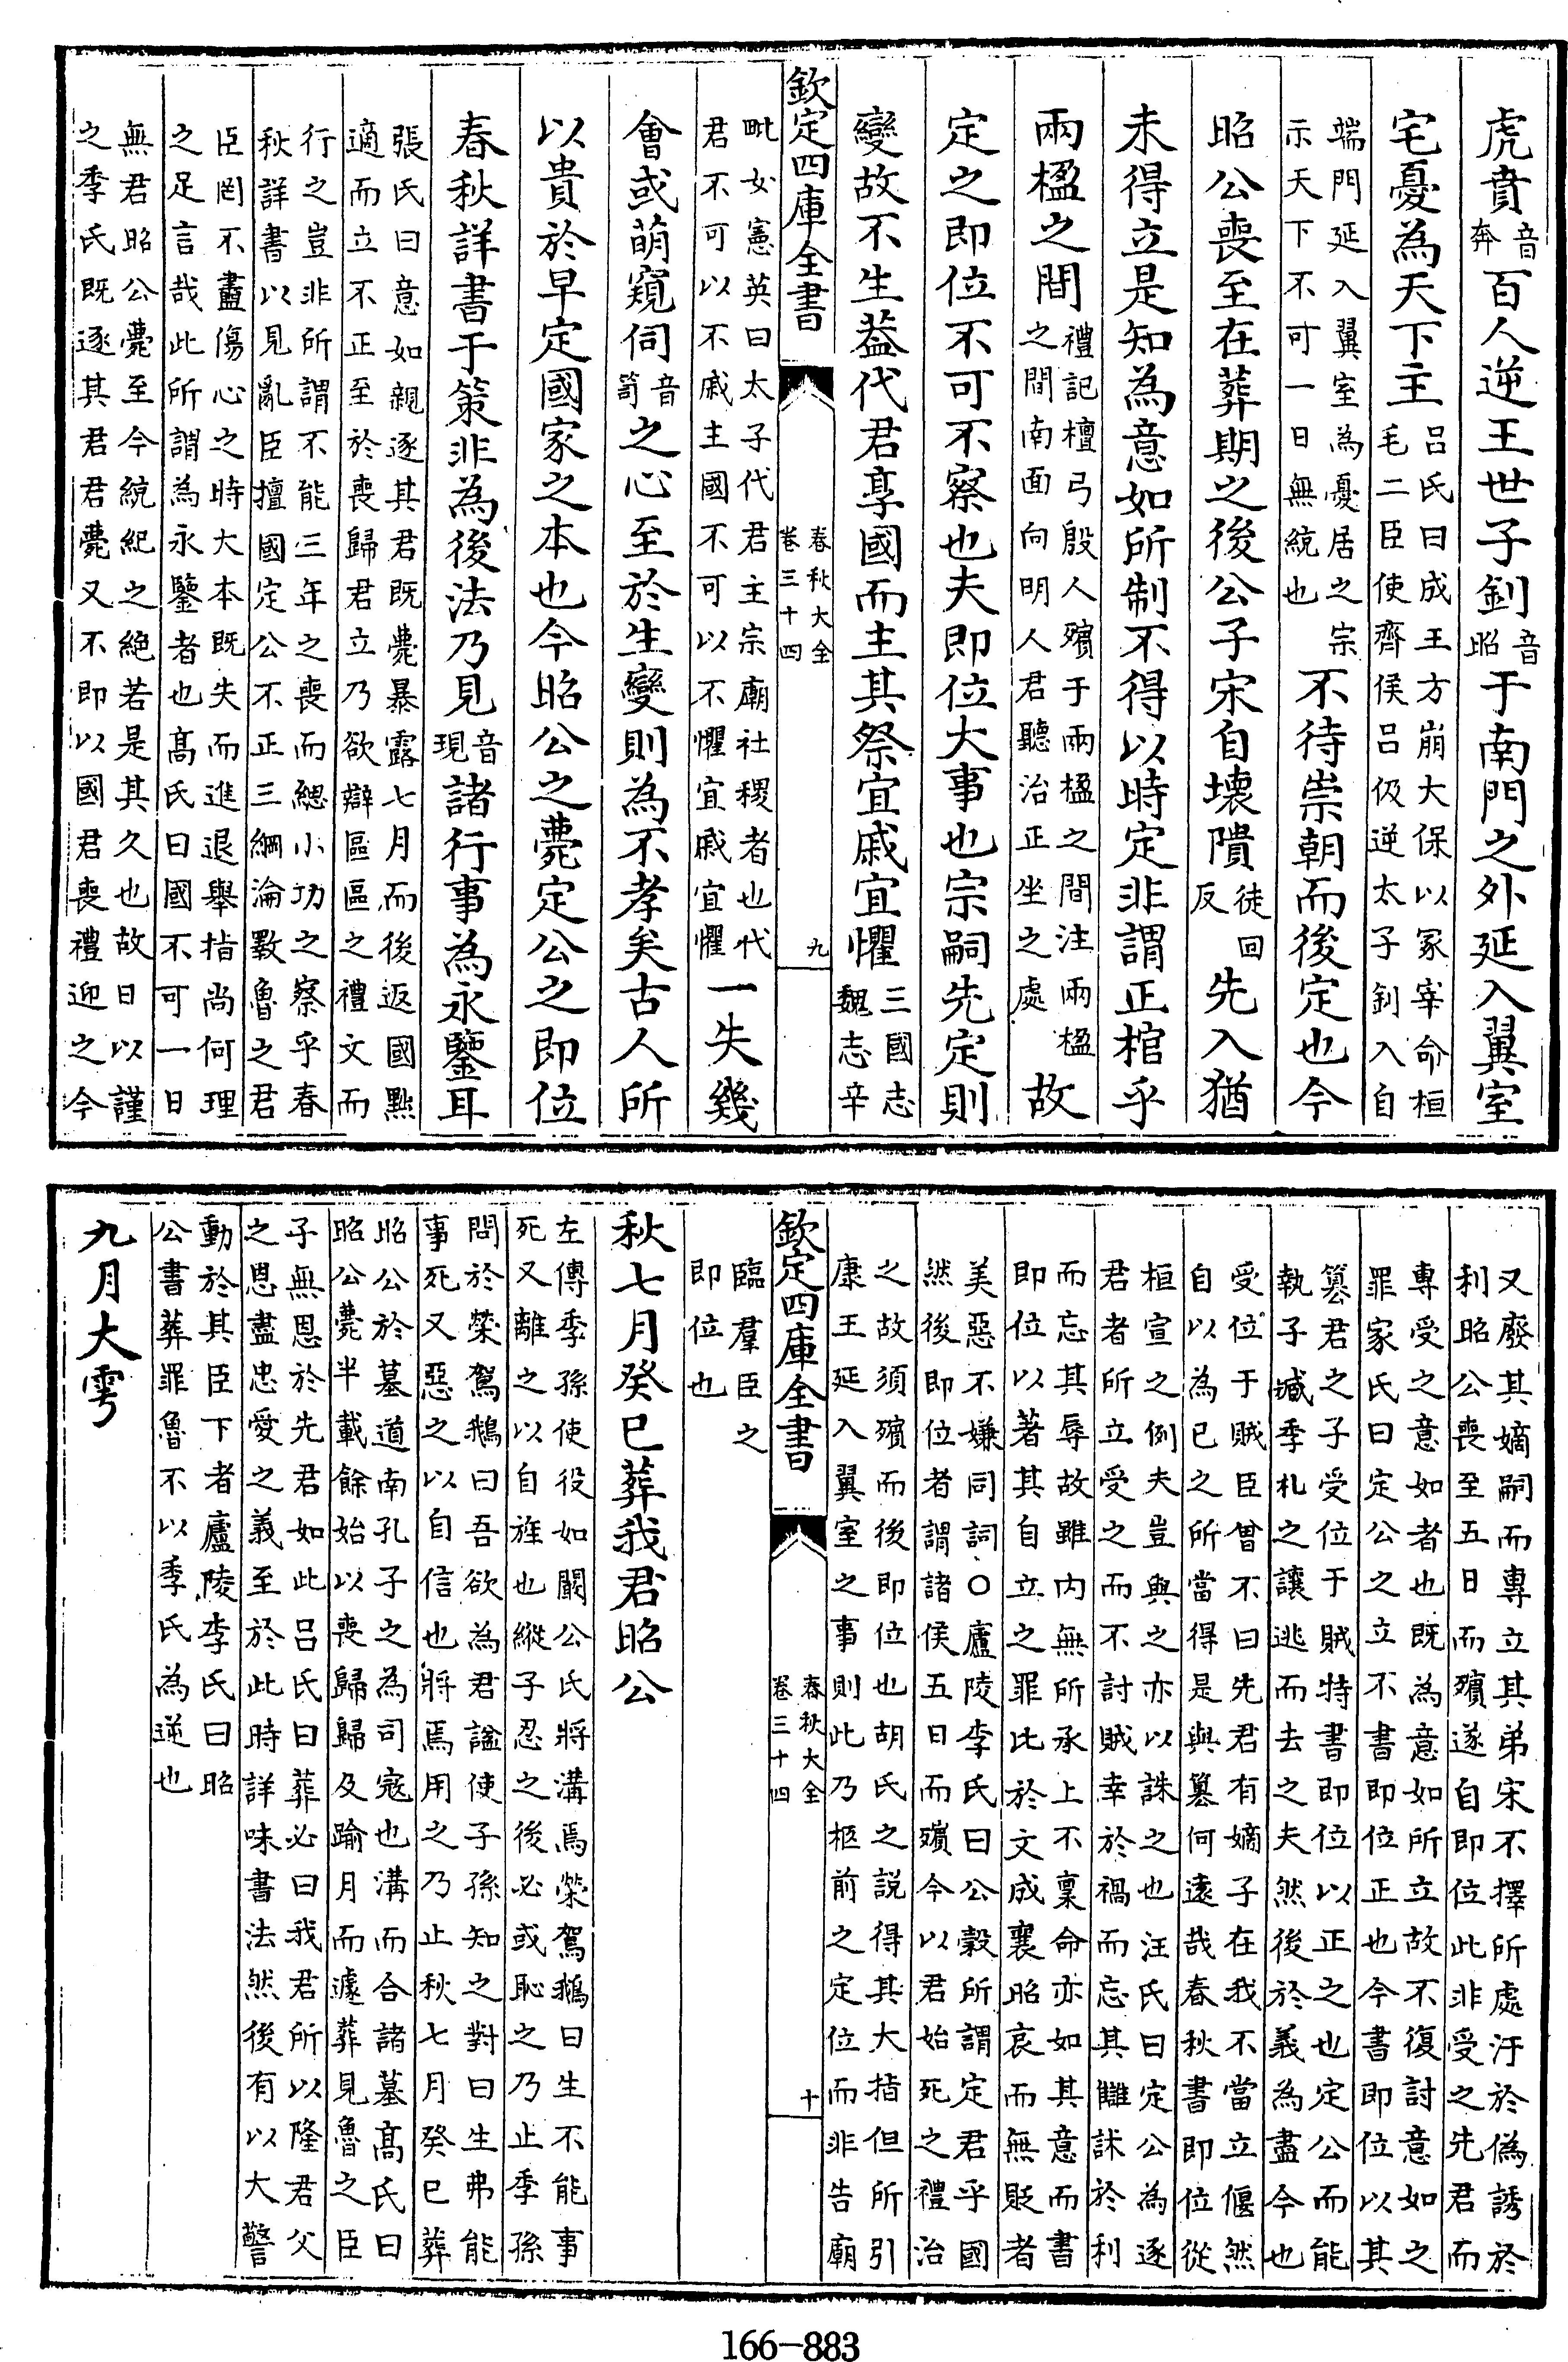 虎賁音奔百人逆王世子釗音昭于南門之外延入翼室
宅憂為天下主吕氏曰成王方崩大保以冢宰命桓毛二臣使齊侯吕伋逆太子釗入自
端門延入翼室為憂居之宗示天下不可一日無統也不待崇朝而後定也今
昭公喪至在葬期之後公子宋自壊隤徒回反先入猶
未得立是知為意如所制不得以時定非謂正棺乎
兩楹之間禮記檀弓殷人殯于兩楹之間注兩楹之間南面向明人君聽治正坐之處故
定之即位不可不察也夫即位大事也宗嗣先定則
變故不生葢代君享國而主其祭宜戚宜懼三國志魏志辛
欽定四庫全書
春秋大全
卷三十四
九
毗女憲英曰太子代君主宗廟社稷者也代君不可以不戚主國不可以不懼宜戚宜懼一失幾
會或萌窺伺音笥之心至於生變則為不孝矣古人所
以貴於早定國家之本也今昭公之薨定公之即位
春秋詳書于策非為後法乃見音現諸行事為永鑒耳
張氏曰意如親逐其君既薨暴露七月而後返國黜
適而立不正至於喪歸君立乃欲辯區區之禮文而
行之豈非所謂不能三年之喪而緦小功之察乎春
秋詳書以見亂臣擅國定公不正三綱淪斁魯之君
臣罔不盡傷心之時大本既失而進退舉指尚何理
之足言哉此所謂為永鑒者也髙氏曰國不可一日
無君昭公薨至今統紀之絶若是其久也故日以謹
之季氏既逐其君君薨又不即以國君喪禮迎之今
又廢其嫡嗣而專立其弟宋不擇所處汙於偽誘於
利昭公喪至五日而殯遂自即位此非受之先君而
專受之意如者也既為意如所立故不復討意如之
罪家氏曰定公之立不書即位正也今書即位以其
簒君之子受位于賊特書即位以正之也定公而能
執子臧季札之讓逃而去之夫然後於義為盡今也
受位于賊臣曽不曰先君有嫡子在我不當立偃然
自以為已之所當得是與簒何逺哉春秋書即位從
桓宣之例夫豈與之亦以誅之也汪氏曰定公為逐
君者所立受之而不討賊幸於禍而忘其讎訹於利
而忘其辱故雖内無所承上不稟命亦如其意而書
即位以著其自立之罪比於文成襄昭哀而無貶者
美惡不嫌同詞○廬陵李氏曰公穀所謂定君乎國
然後即位者謂諸侯五日而殯今以君始死之禮治
之故須殯而後即位也胡氏之説得其大指但所引
康王延入翼室之事則此乃柩前之定位而非告廟
欽定四庫全書
春秋大全
卷三十四
十
臨羣臣之
即位也
秋七月癸巳葬我君昭公
左傳季孫使役如闞公氏將溝焉榮駕鵝曰生不能事
死又離之以自旌也縱子忍之後必或恥之乃止季孫
問於榮駕鵝曰吾欲為君謚使子孫知之對曰生弗能
事死又惡之以自信也將焉用之乃止秋七月癸巳葬
昭公於墓道南孔子之為司冦也溝而合諸墓髙氏曰
昭公薨半載餘始以喪歸歸及踰月而遽葬見魯之臣
子無恩於先君如此吕氏曰葬必曰我君所以隆君父
之恩盡忠愛之義至於此時詳味書法然後有以大警
動於其臣下者廬陵李氏曰昭
公書葬罪魯不以季氏為逆也
九月大雩
166-883